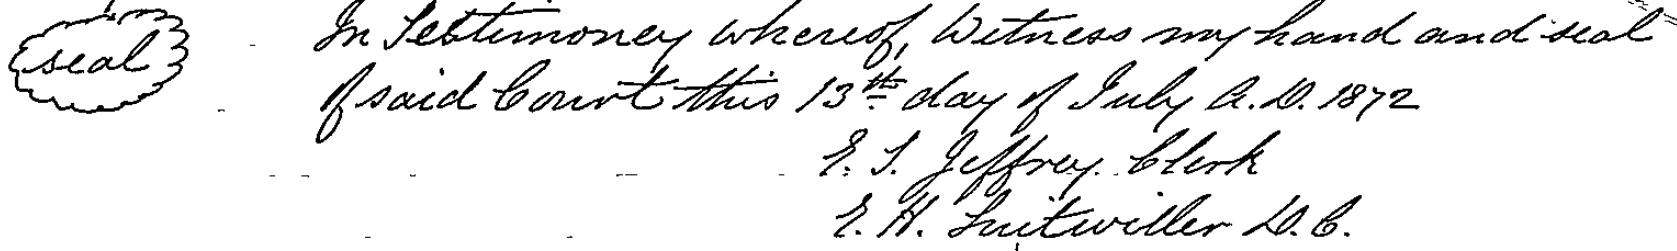 seal
In Testimoney whereof, Witness my hand and seal
of said Court this 13th day of July A.D. 1872
E. T. Jeffrey. Clerk
E. H. Luitwiller D.C.